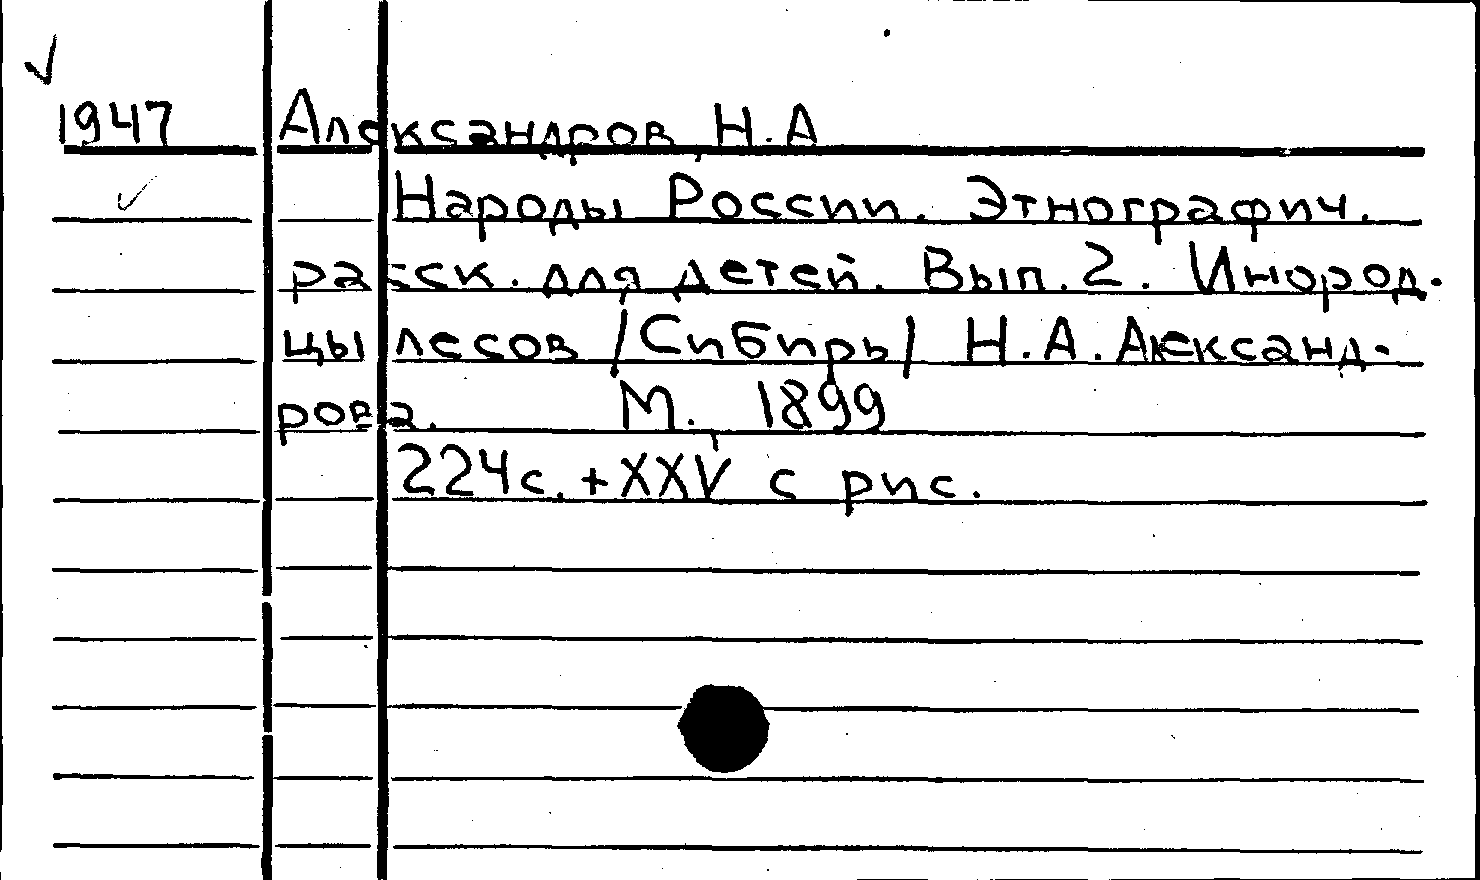 1947 Александров, Н.А
Народы России. Этнографич.
расск. для детей. Вып. 2. Инород-
цы лесов /Сибирь/ Н.А. Александ-
рова. М., 1899
224с. + XXV с рис.